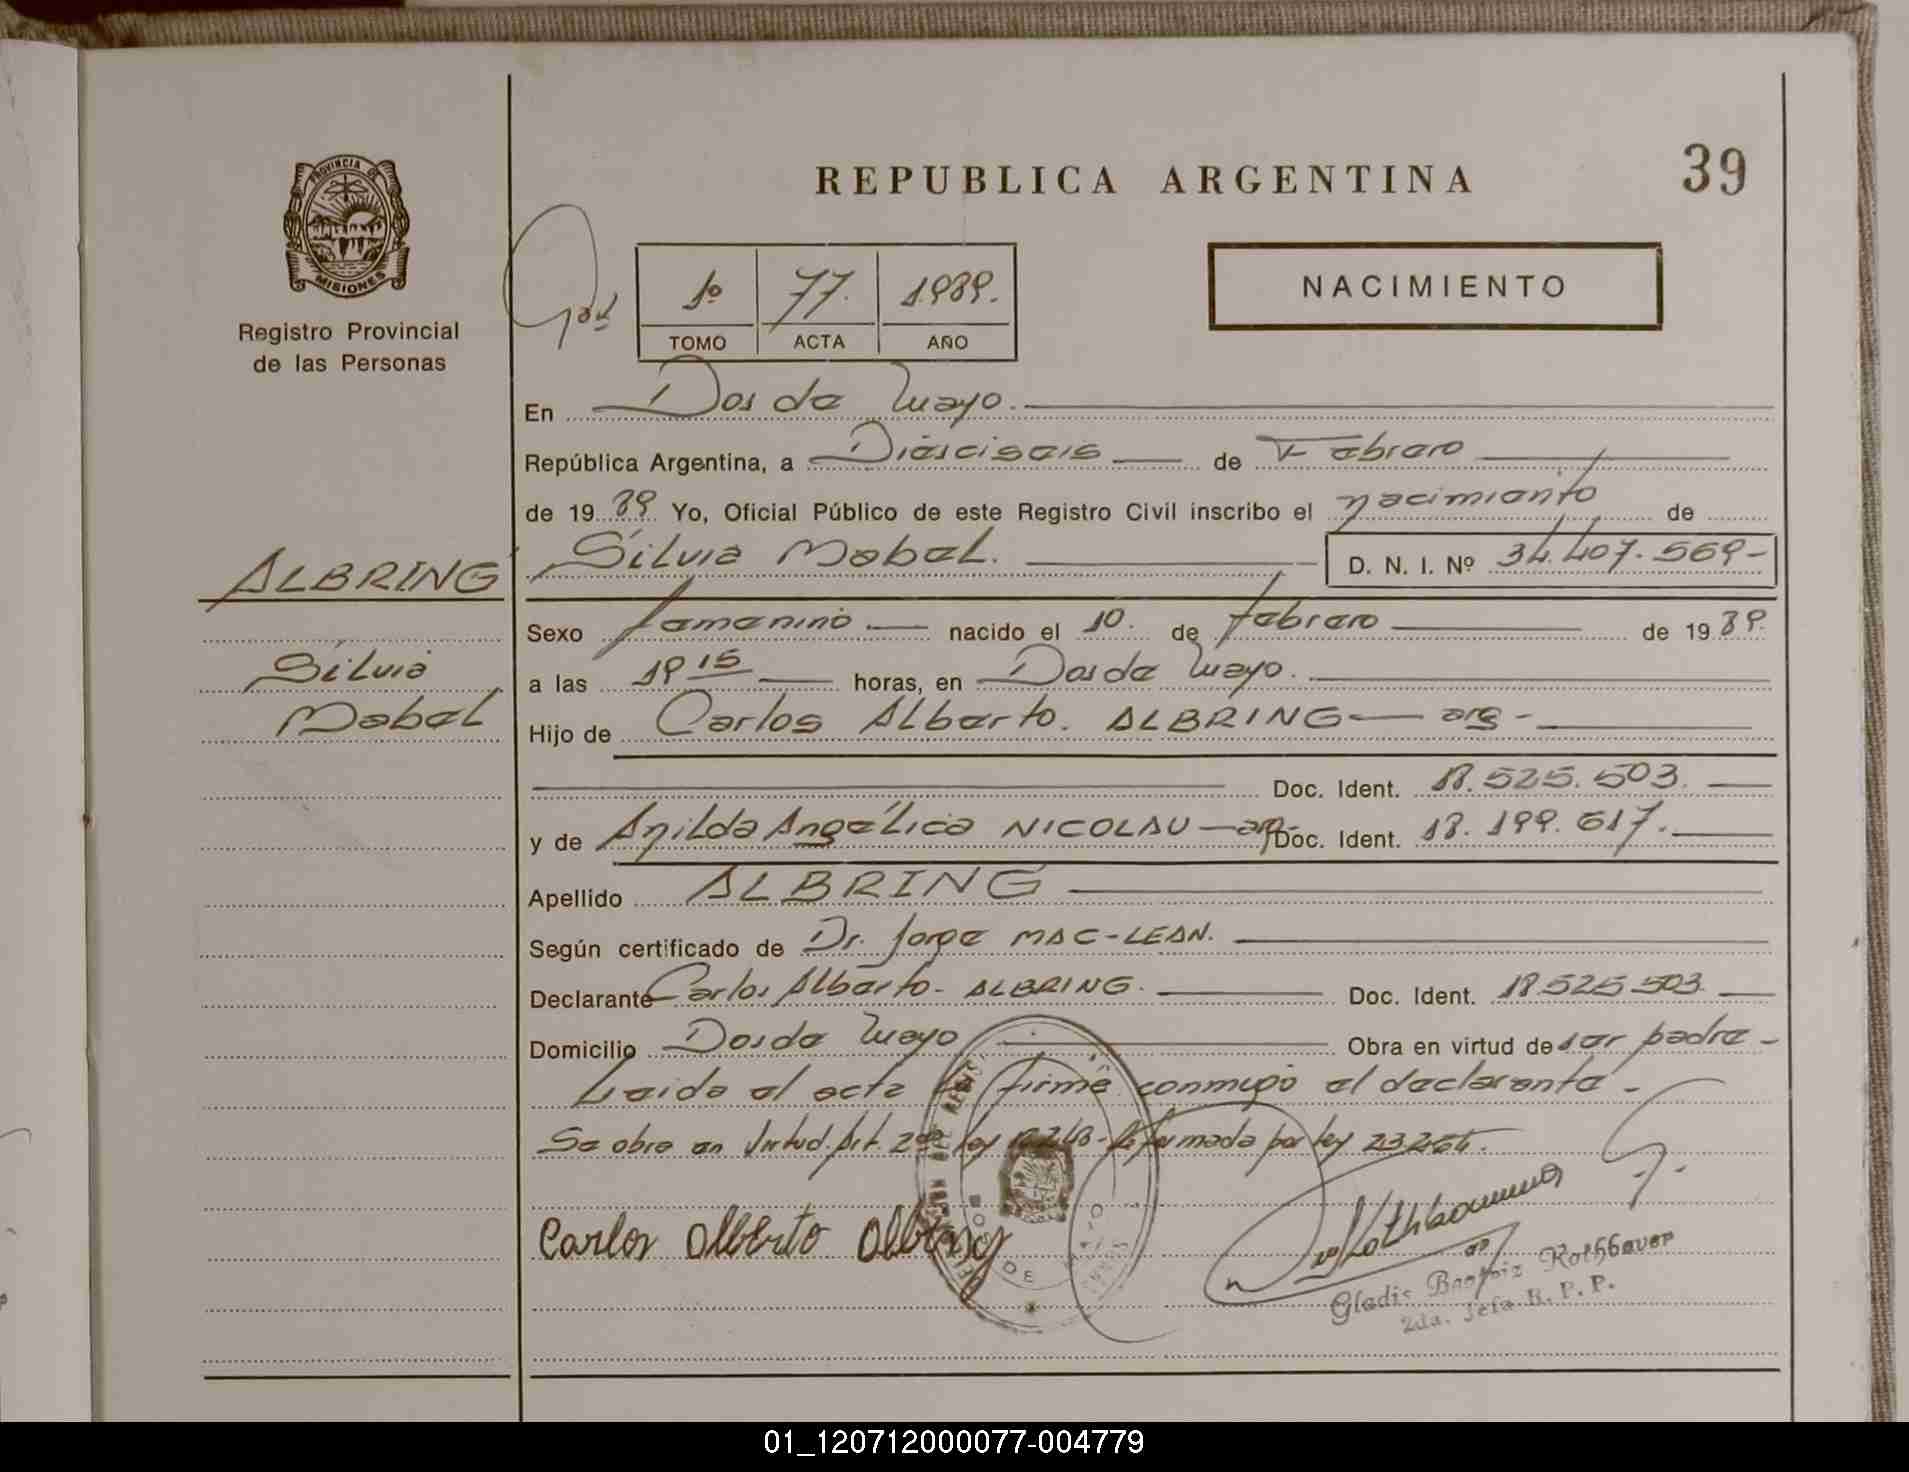 REPUBLICA ARGENTINA
39
PROVINCIA DE
MISIONES
Registro Provincial
de las Personas
NACIMIENTO
1º 77. 1989.
TOMO ACTA AÑO
En Dos de Mayo.
República Argentina, a Dieciseis de Febrero
de 1989 Yo, Oficial Público de este Registro Civil inscribo el nacimiento de
ALBRING
Silvia Mabel. D. N. I. Nº 34.407.569-
Sexo femenino nacido el 10. de febrero de 1989.
Silvia
Mabel
a las 19 15 horas, en Dos de Mayo.
Hijo de Carlos Alberto. ALBRING arg-
Doc. Ident. 18.525.503.
y de Anilda Angélica NICOLAU arg- Doc. Ident. 18.199.617.
Apellido ALBRING
Según certificado de Dr. Jorge MAC-LEAN.
Declarante Carlos Alberto- ALBRING. Doc. Ident. 18.525.503.
Domicilio Dos de Mayo Obra en virtud de ser padre-
Leida el acta la firma conmigo el declarante-
Se obra en Virtud. Art. 2do ley 18.248- Reformada por ley 23.264.
Carlos Alberto Albring
Gladis Beatriz Rothbauer
2da. Jefa R. P. P.
01_120712000077-004779